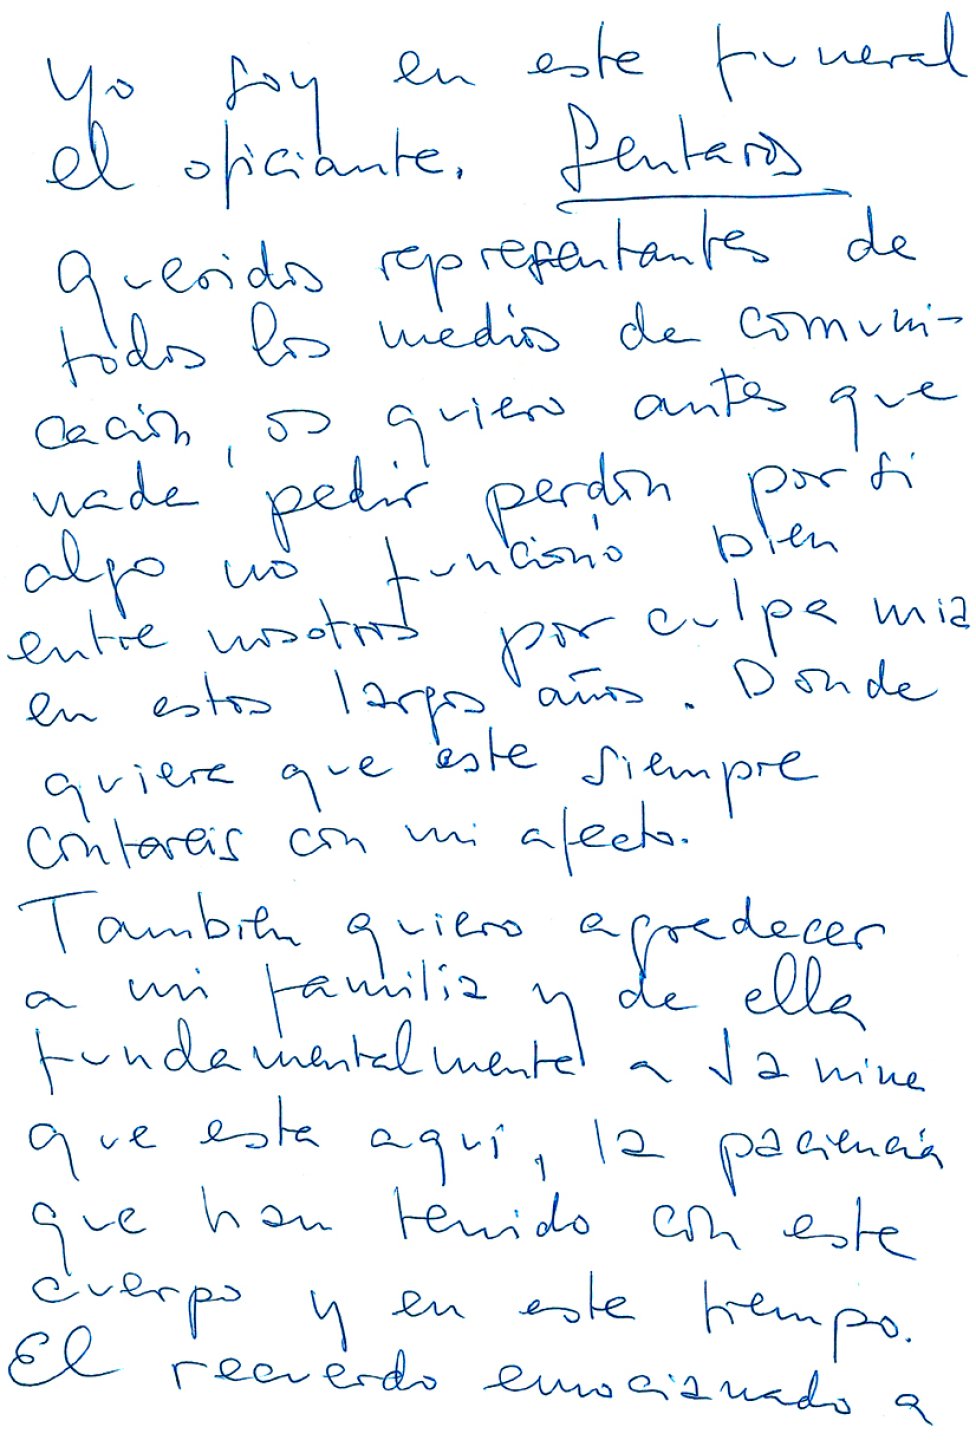 Yo soy en este funeral
el oficiante. Sentaros
Queridos representantes de
todos los medios de comuni-
cación, os quiero antes que
nada pedir perdón por si
algo no funcionó bien
entre nosotros por culpa mia
en estos largos años. Donde
quiera que este siempre
contareis con mi afecto.
Tambien quiero agradecer
a mi familia y de ella
fundamentalmente a Janine
que esta aquí, la paciencia
que han tenido con este
cuerpo y en este tiempo.
El recuerdo emocionado a